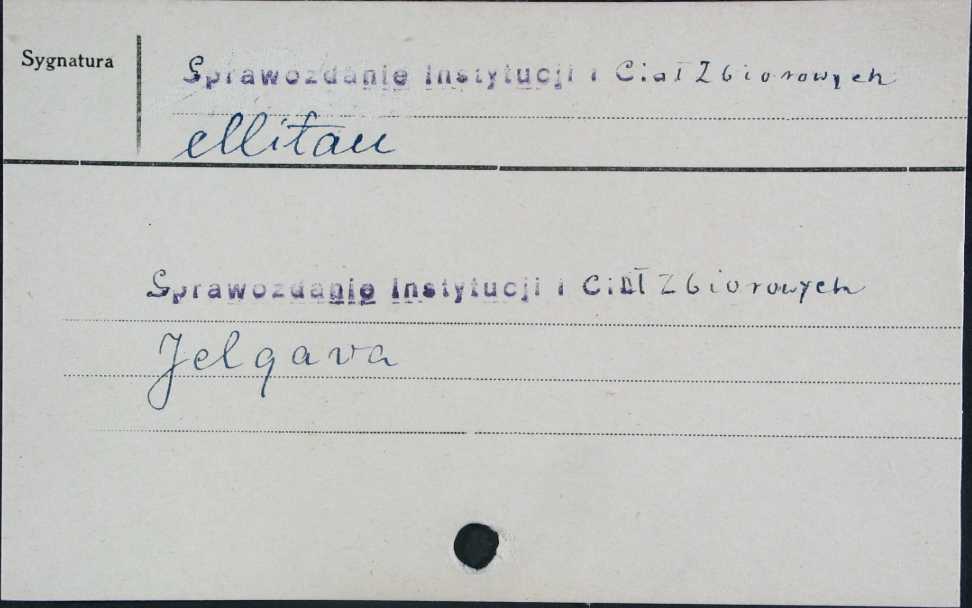 Sygnatura
Sprawozdanie Instytucji i Ciał Zbiorowych
Mitau
Sprawozdanie Instytucji i Ciał Zbiorowych
Jelgava